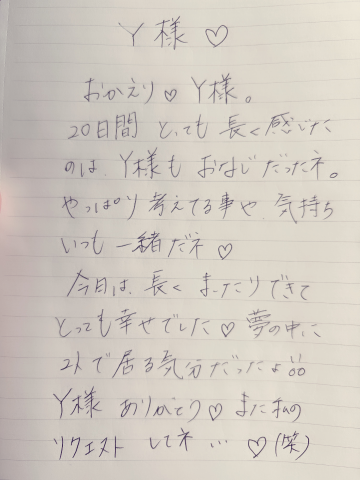 Y様 ♡
おかえり♡ Y様。
20日間 とっても 長く感じた
のは、Y様も おなじだったネ。
やっぱり 考えてる事や、気持ち
いつも 一緒だネ ♡
今日は、長く まったりできて
とっても幸せでした♡ 夢の中に
2人で居る気分だったょ!!
Y様 ありがとう♡ また 私の
リクエスト してネ … ♡(笑)